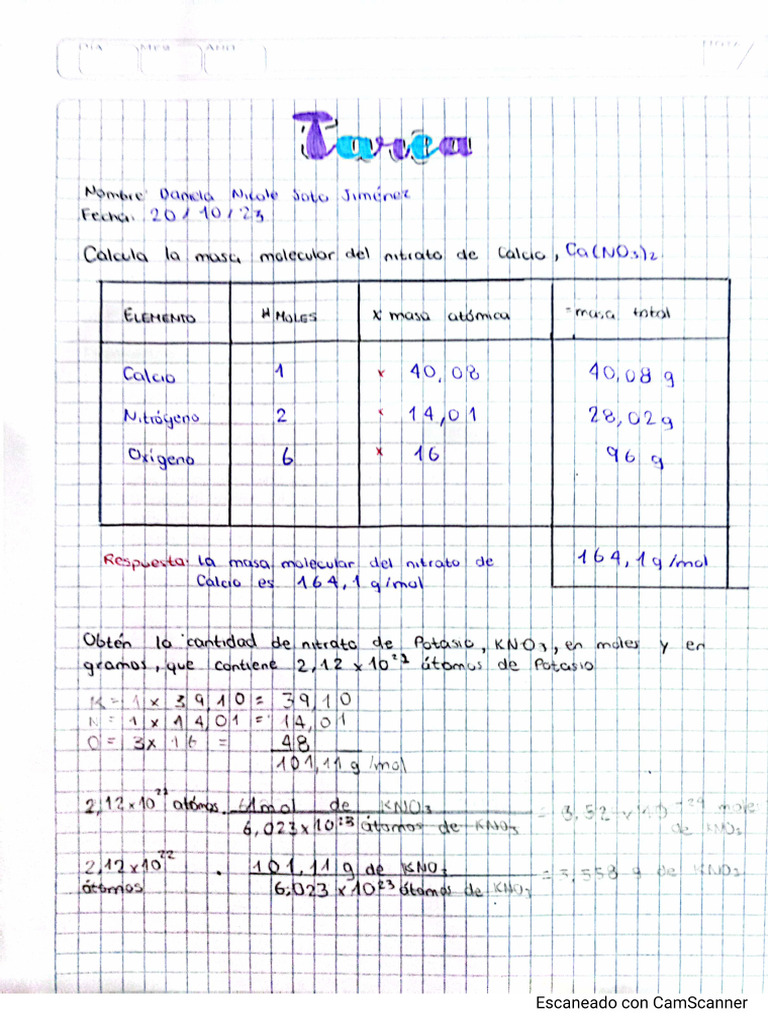 DIA MES AÑO
Tarea
Nombre: Daniela Nicole Soto Jiménez
Fecha: 20/10/23
Calcula la masa molecular del nitrato de Calcio, Ca(NO₃)₂
ELEMENTO # MOLES x masa atómica = masa total
Calcio 1 x 40,08 40,08 g
Nitrógeno 2 x 14,01 28,02g
Oxígeno 6 x 16 96 g
164,1g/mol
Respuesta: la masa molecular del nitrato de
Calcio es 164,1 g/mol
Obtén la cantidad de nitrato de Potasio, KNO₃, en moles y en
gramos, que contiene 2,12 x 10²² átomos de Potasio
K = 1 x 39,10 = 39,10
N = 1 x 14,01 = 14,01
O = 3x 16 = 48
101,11 g/mol
2,12x10²² átomos. 1mol de KNO₃ = 3,52 x 10 mole
6,023x10²³ átomos de KNO₃ de KNO₃
2,12x10²² . 101,11 g de KNO₃ = 3,558 g de KNO₃
átomos 6,023 x10²³ átomos de KNO₃
Escaneado con CamScanner